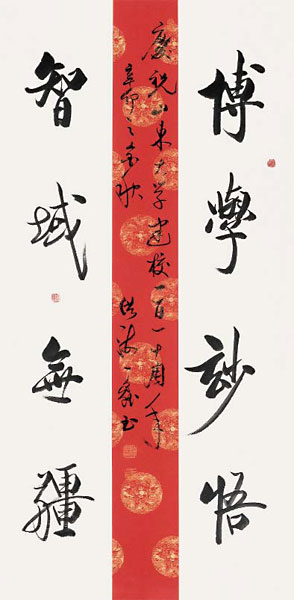 博學妙悟
慶祝山東大学建校一百一十周年
辛卯之金秋 書
智域無疆